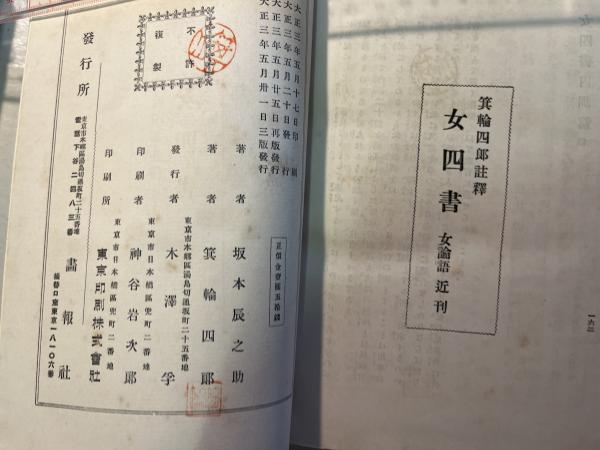 箕輪四郎註釋
女四書 女論語 近刊
一六二
大正三年五月十七日印刷
大正三年五月二十日發行
大正三年五月廿五日再版發行
大正三年五月卅一日三版發行
不許
複製
著者 坂本辰之助
著者 箕輪四郎
東京市本鄕區湯島切通坂町二十五番地
發行者 木澤孚
東京市日本橋區兜町二番地
印刷者 神谷岩次郎
東京市日本橋區兜町二番地
印刷所 東京印刷株式會社
發行所
東京市本鄕區湯島切通坂町二十五番地
電話下谷二四八三番
畵報社
振替口座東京一八一〇六番